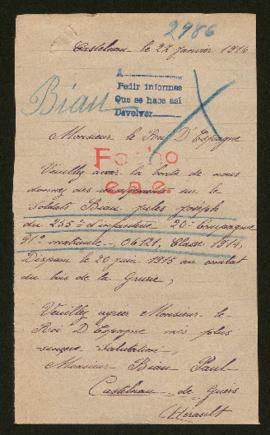 2986
Castelnau le 28 janvier 1916
A
Pedir informes
Que se hace asi
Devolver
Biau
Monsieur le Roi D'Espagne
Fecho
ene.
Veuillez avoir la bonté de nous
donner des renseignements sur le
Soldat Biau jules joseph
du 255e d'infanterie 20e Compagnie
matricule 06121, Classe 1914,
Disparu le 20 juin 1915 au combat
du bois de la Grurie,
Veuillez agréer Monsieur le
Roi D'Espagne mes plus
Salutation,
Monsieur Biau Paul
Castelnau de Guers
Hérault